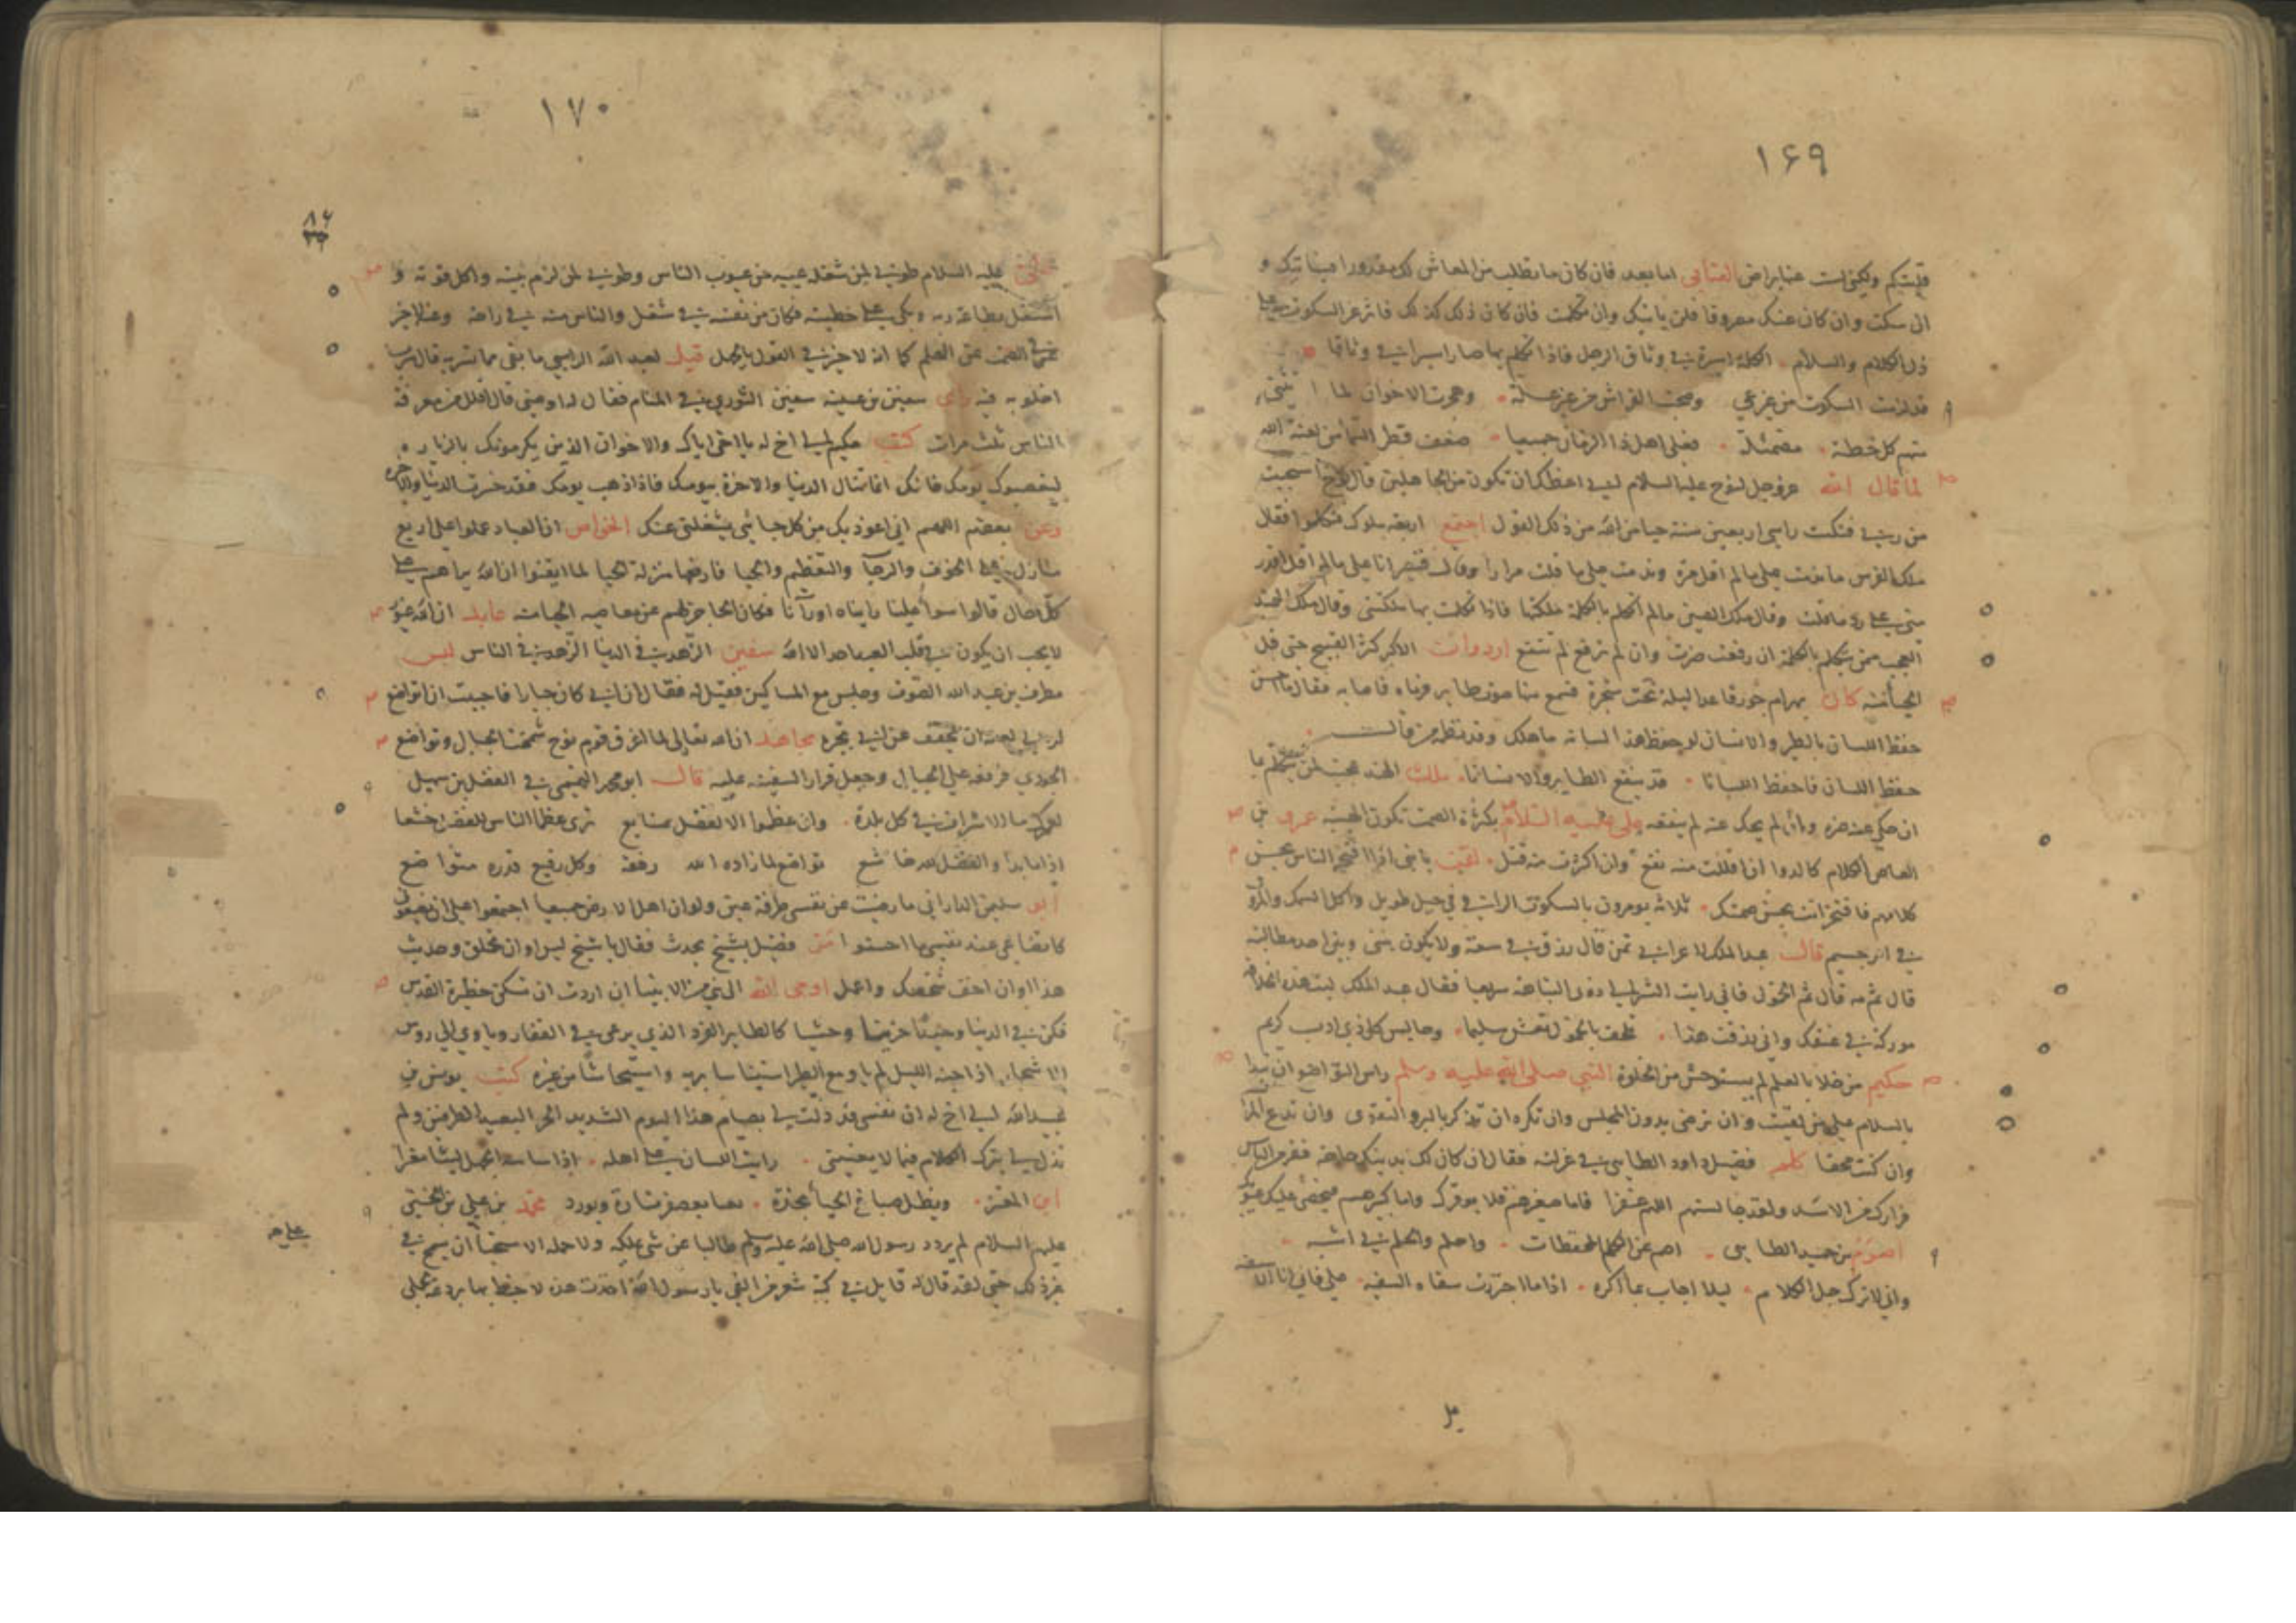 ۱۶۹
ولكن لست عنا براض العتابي اما بعد فان كان ما تطلب من المعاش لك مقدورا فسياتيك و
ان سكت وان كان عنك مصروفا فلن ياتيك وان تكلمت فان كان ذلك كذلك فاثر عز السكوت على
ذل الكلام والسلام الكلمة اسيرة في وثاق الرجل فاذا تكلم بها صار اسيرا في وثاقها
قد لزمت السكوت من غير عي وهجرت الاخوان لما
منهم كل خطة فعلى اهل ذا الزمان جميعا قطر السماء من لعنة الله
لما قال الله عز وجل لنوح عليه السلام اني اعظك ان تكون من الجاهلين قال نوح استحييت
من ربي فنكست راسي اربعين سنة حياء من الله من ذلك القول اجتمع اربعة ملوك فتكلموا فقال
ملك الفرس ما ندمت على ما لم اقل مرة وندمت على ما قلت مرارا وقال قيصر انا على ما لم اقل اقدر
مني على رد ما قلت وقال ملك الصين ما لم اتكلم بالكلمة ملكتها فاذا تكلمت بها ملكتني وقال ملك الهند
العجب ممن يتكلم بالكلمة ان رفعت ضرت وان لم ترفع لم تنفع
كان بهرام جور قاعدا ليلة تحت شجرة فسمع منها صوت طاير فرماه فاصابه فقال ما احسن
حفظ اللسان بالطير والانسان لو حفظ هذا لسانه ما هلك وقد نظم من قال
حفظ اللسان فاحفظ اللسانا قد ينفع الطاير والانسانا ملك الهند عجبت لمن يتكلم بما
ان حكي عنه ضره وان لم يحك عنه لم ينفعه علي عليه السلام بكثرة الصمت تكون الهيبة عمرو بن
العاص الكلام كالدواء ان اقللت منه نفع وان اكثرت منه قتل لقمن يا بني اذا افتخر الناس بحسن
كلامهم فافتخر انت بحسن صمتك ثلاثة يومرون بالسكوت الراقي في جبل طويل واكل السمك والمروي
في امر جسيم قال عبد الملك لاعرابي تمن قال رزق في سعة ولا يكون بيني وبين احد مطالبة
قال ثم مه قال ثم الخمول فاني رايت الشر الى ذوي النباهة سريعا فقال عبد الملك ليت هذه الخلافة
موركة في عنقك واني رزقت هذا تلحف بالخمول تعش سليما وجالس كل ذي ادب كريم
حكيم من خلا بالعلم لم يستوحش من الخلوة النبي صلى الله عليه وسلم راس التواضع ان تبدا
بالسلام على من لقيت وان ترضى بدون المجلس وان تكره ان تذكر بالبر والتقوى وان تدع المراء
وان كنت محقا كلم فضيل داود الطايي في عزلته فقال ان كان لك بدينك حاجة ففر من الناس
فرارك من الاسد ولقد جالستهم اللهم غفرا فاما صغيرهم فلا يوقرك واما كبيرهم فيحصي عليك عيوبك
بن حميد الطايي اصم عن الكلم المحفظات واحلم والحلم بي اشبه
واني لاترك جل الكلام ليلا اجاب بما اكره اذا ما اجتررت سفاه السفيه علي فاني انا الاسفه
۱۷۰
۸۶
عليه السلام طوبى لمن شغله عيبه عن عيوب الناس وطوبى لمن لزم بيته واكل قوته و
اشتغل بطاعة ربه وبكى على خطيئته فكان من نفسه في شغل والناس منه في راحة وعنه لا خير
في الصمت عن العلم كما انه لا خير في القول بالجهل قيل لعبد الله الراسبي ما بقي مما تسر به قال سرب
اخلو به فيه راى سفين بن عيينه سفين الثوري في المنام فقال له اوصني قال اقلل من معرفة
الناس ثلث مرات كتب حكيم الى اخ له يا اخي اياك والاخوان الذين يكرمونك بالزيارة
ليغصبوك يومك فانك انما تنال الدنيا والاخرة بيومك فاذا ذهب يومك فقد خسرت الدنيا والاخرة
وعن بعضهم اللهم اني اعوذ بك من كل جائ يشغلني عنك الخواص ان العباد عملوا على اربع
منازل على الخوف والرجآ والتعظيم والحيا فارفعها منزلة الحيا لما ايقنوا ان الله يراهم على
كل حال قالوا سوآ علينا رايناه او رآنا فكان الحاجز لهم عن معاصيه الحيا منه عابد ان الله غيور
لا يحب ان يكون في قلب العبد احد الا الله سفين الزهد في الدنيا الزهد في الناس لبس
مطرف بن عبد الله الصوف وجلس مع المساكين فقيل له فقال ان ابي كان جبارا فاحببت ان اتواضع
لربي لعله ان يخفف عن ابي تجبره مجاهد ان الله تعالى لما اغرق قوم نوح شمخت الجبال وتواضع
الجودي فرفعه على الجبال وجعل قرار السفينة عليه قال ابو محمد التيمي في الفضل بن سهل
لعمرك ما الاشراف في كل بلدة وان عظموا الا لفضل صنايع ترى عظما الناس للفضل خشعا
اذا ما بدا والفضل لله خاشع تواضع لما زاده الله رفعة وكل رفيع قدره متواضع
ابو سليمن الداراني ما رضيت عن نفسي طرفة عين ولو ان اهل الارض جميعا اجتمعوا على ان يضعوني
كاتضاعي عند نفسي ما احسنوا مر فضيل بشيخ يحدث فقال يا شيخ ليس اوان تخلق وحديث
هذا اوان اخف شخصك واعمل اوحى الله الى نبي من الانبيآ ان اردت ان تسكن حظيرة القدس
فكن في الدنيا وحيدا حزينا وحشيا كالطاير الفرد الذي يرعى في القفار وياوي الى روس
الاشجار اذا جنه الليل لم ياو مع الطير استيناسا بربه واستيحاشا من غيره كتب يونس بن
عبيد الله الى اخ له ان نفسي قد ذلت لي بصيام هذا اليوم الشديد الحر البعيد الطرفين ولم
تذل لي بترك الكلام فيما لا يعنيني رايت اللسان على اهله اذا ساسه الجهل ليثا مغيرا
ابن المعتز ويظل صباغ الحيا بخده تعبا يعصفر تارة ويورد محمد بن علي بن الحسين
عليهم السلام لم يردد رسول الله صلى الله عليه وسلم طالبا عن شي يملكه ولا حمله الاستحيآ ان يسمح في
غير ذلك حتى لقد قال له قايل في كبة شعر من الفي يا رسول الله اخذت هذه لاخيط بها بردعة جملي